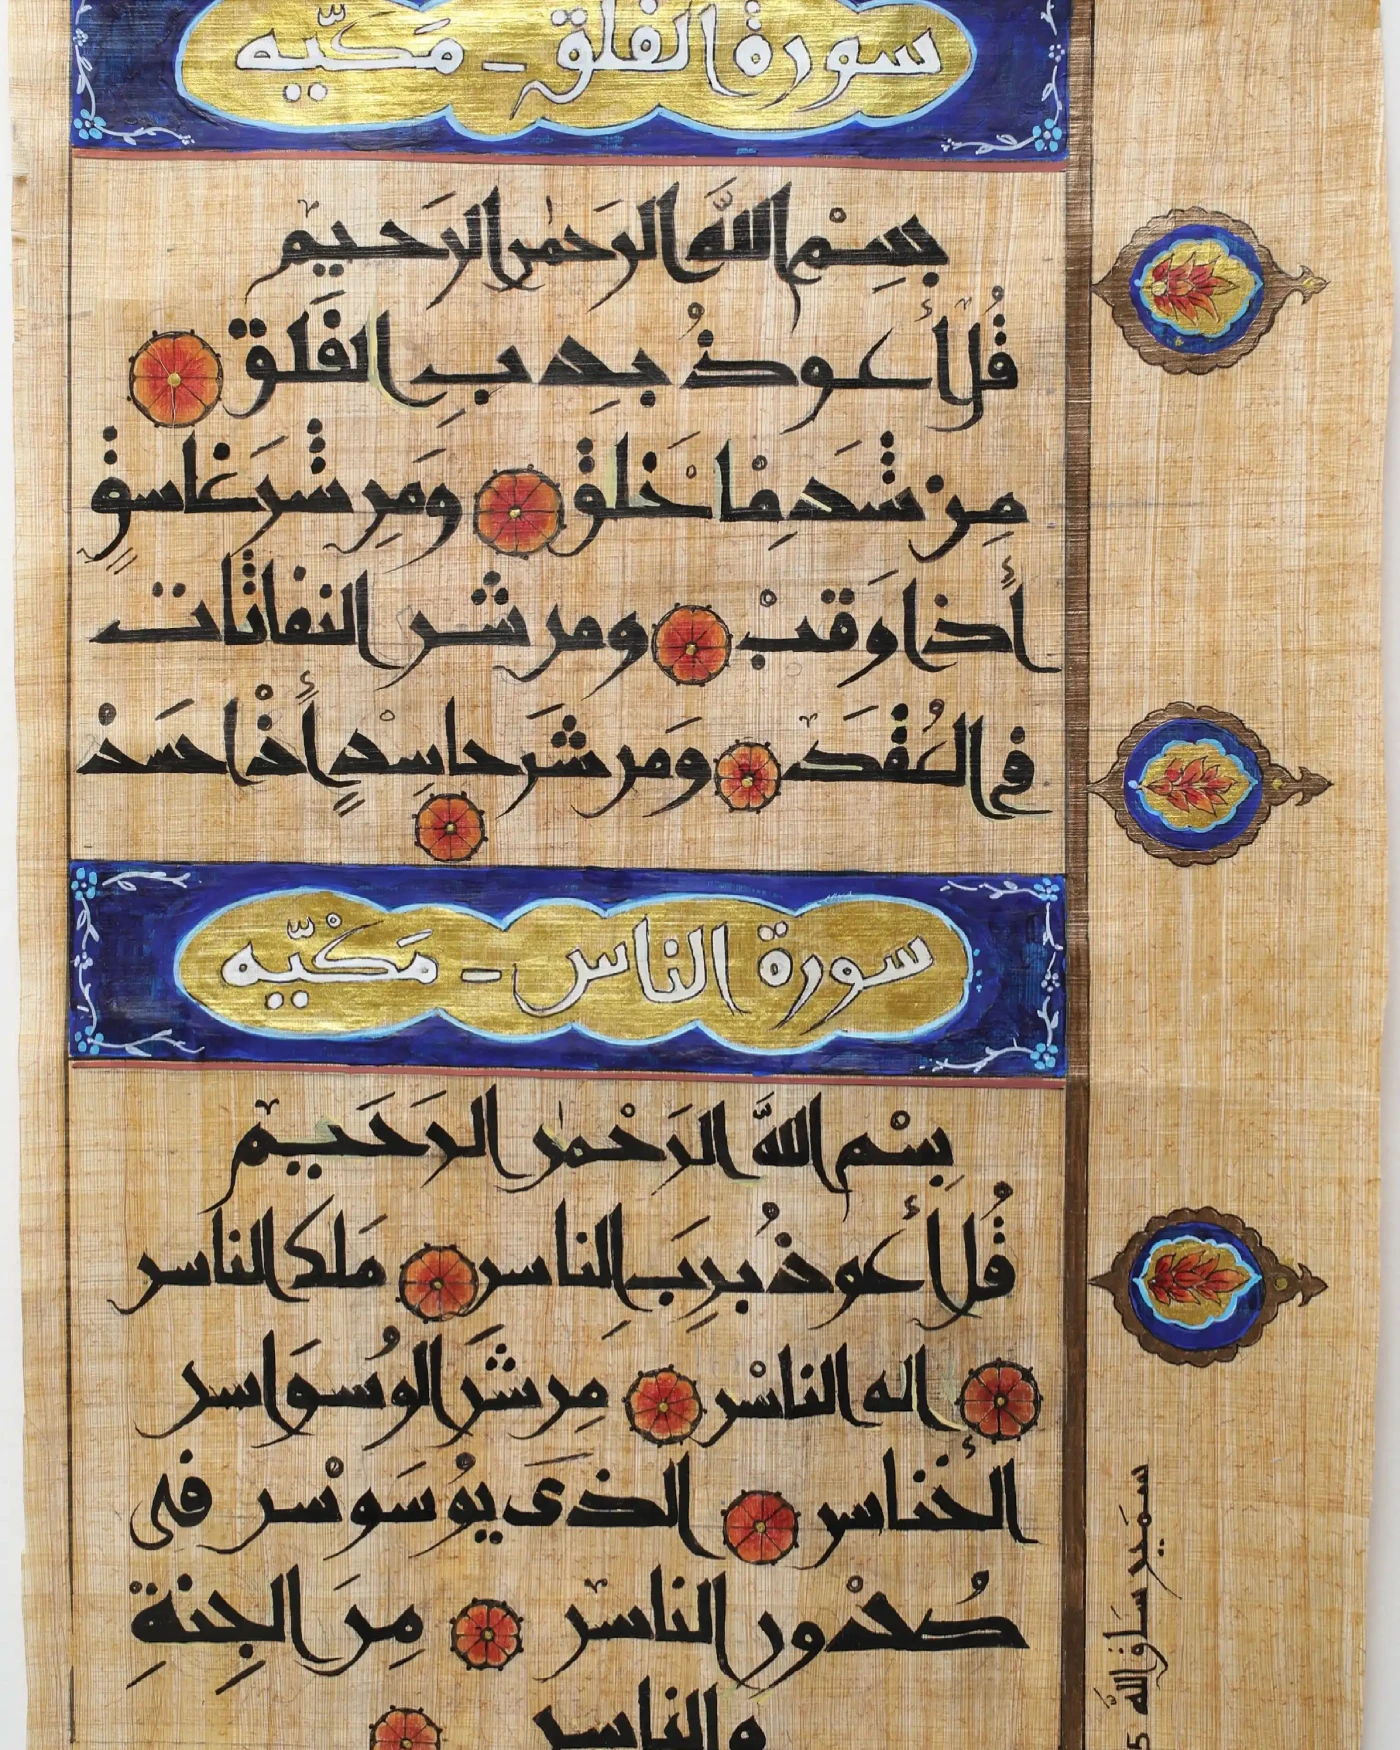 سورة الفلق - مكيّه
بسْم اللَّه الرحمٰن الرحيم
قُل أعوذُ برب الفَلق
مِن شر مْا خَلق ومَن شر غَاسقٍ
أذا وَقبْ ومن شر النفاثات
في العُقَد وَمن شَر حاسدٍ أذْا حسَدْ
سورة الناس - مَكْيّه
بِسْم اللَّه الرَحْمٰن الرَحَيم
قُل أعوذُ برِبَ الناس مَلك الناس
اله الناسْ مِن شَر الوُسوَاس
الخَناس الذَى يوُسَوسْ فى
صُدْور الناس مِنَ الجِنةِ
والناس
سمير ساق الله